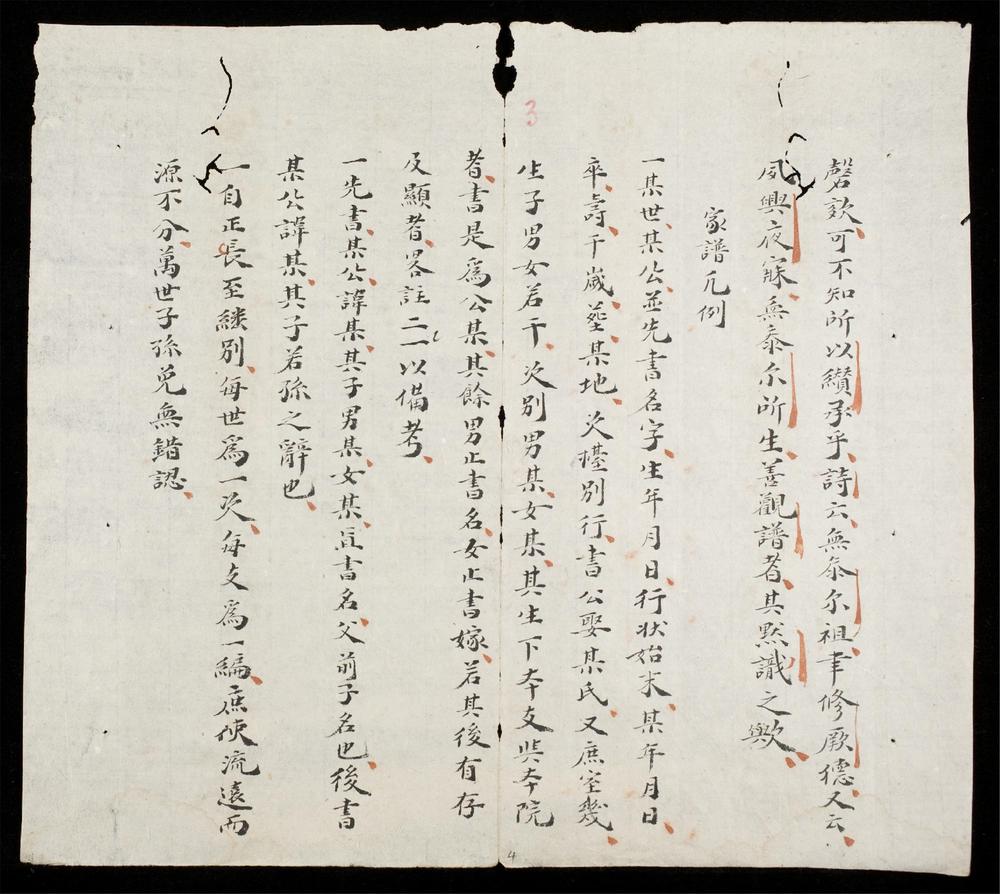 3
謦欬可不知所以纘承乎詩云無忝尔祖聿修厥德又云
夙興夜寐無忝尔所生善觀譜者其默識之歟
家譜凡例
一某世某公並先書名字生年月日行状始末某年月日
卒壽干歲塟某地次擡別行書公娶某氏又庶室幾
生子男女若干次別男某女某其生下夲支㒷夲院
者書是爲公某其餘男止書名女止書嫁若其後有存
及顯者畧註一二以俻考
一先書某公諱某其子男某女某直書名父前子名也後書
某公諱某其子若孫之辭也
一自正長至繼別每世爲一次每支爲一編庶使流遠而
源不分萬世子孫免無錯認
4